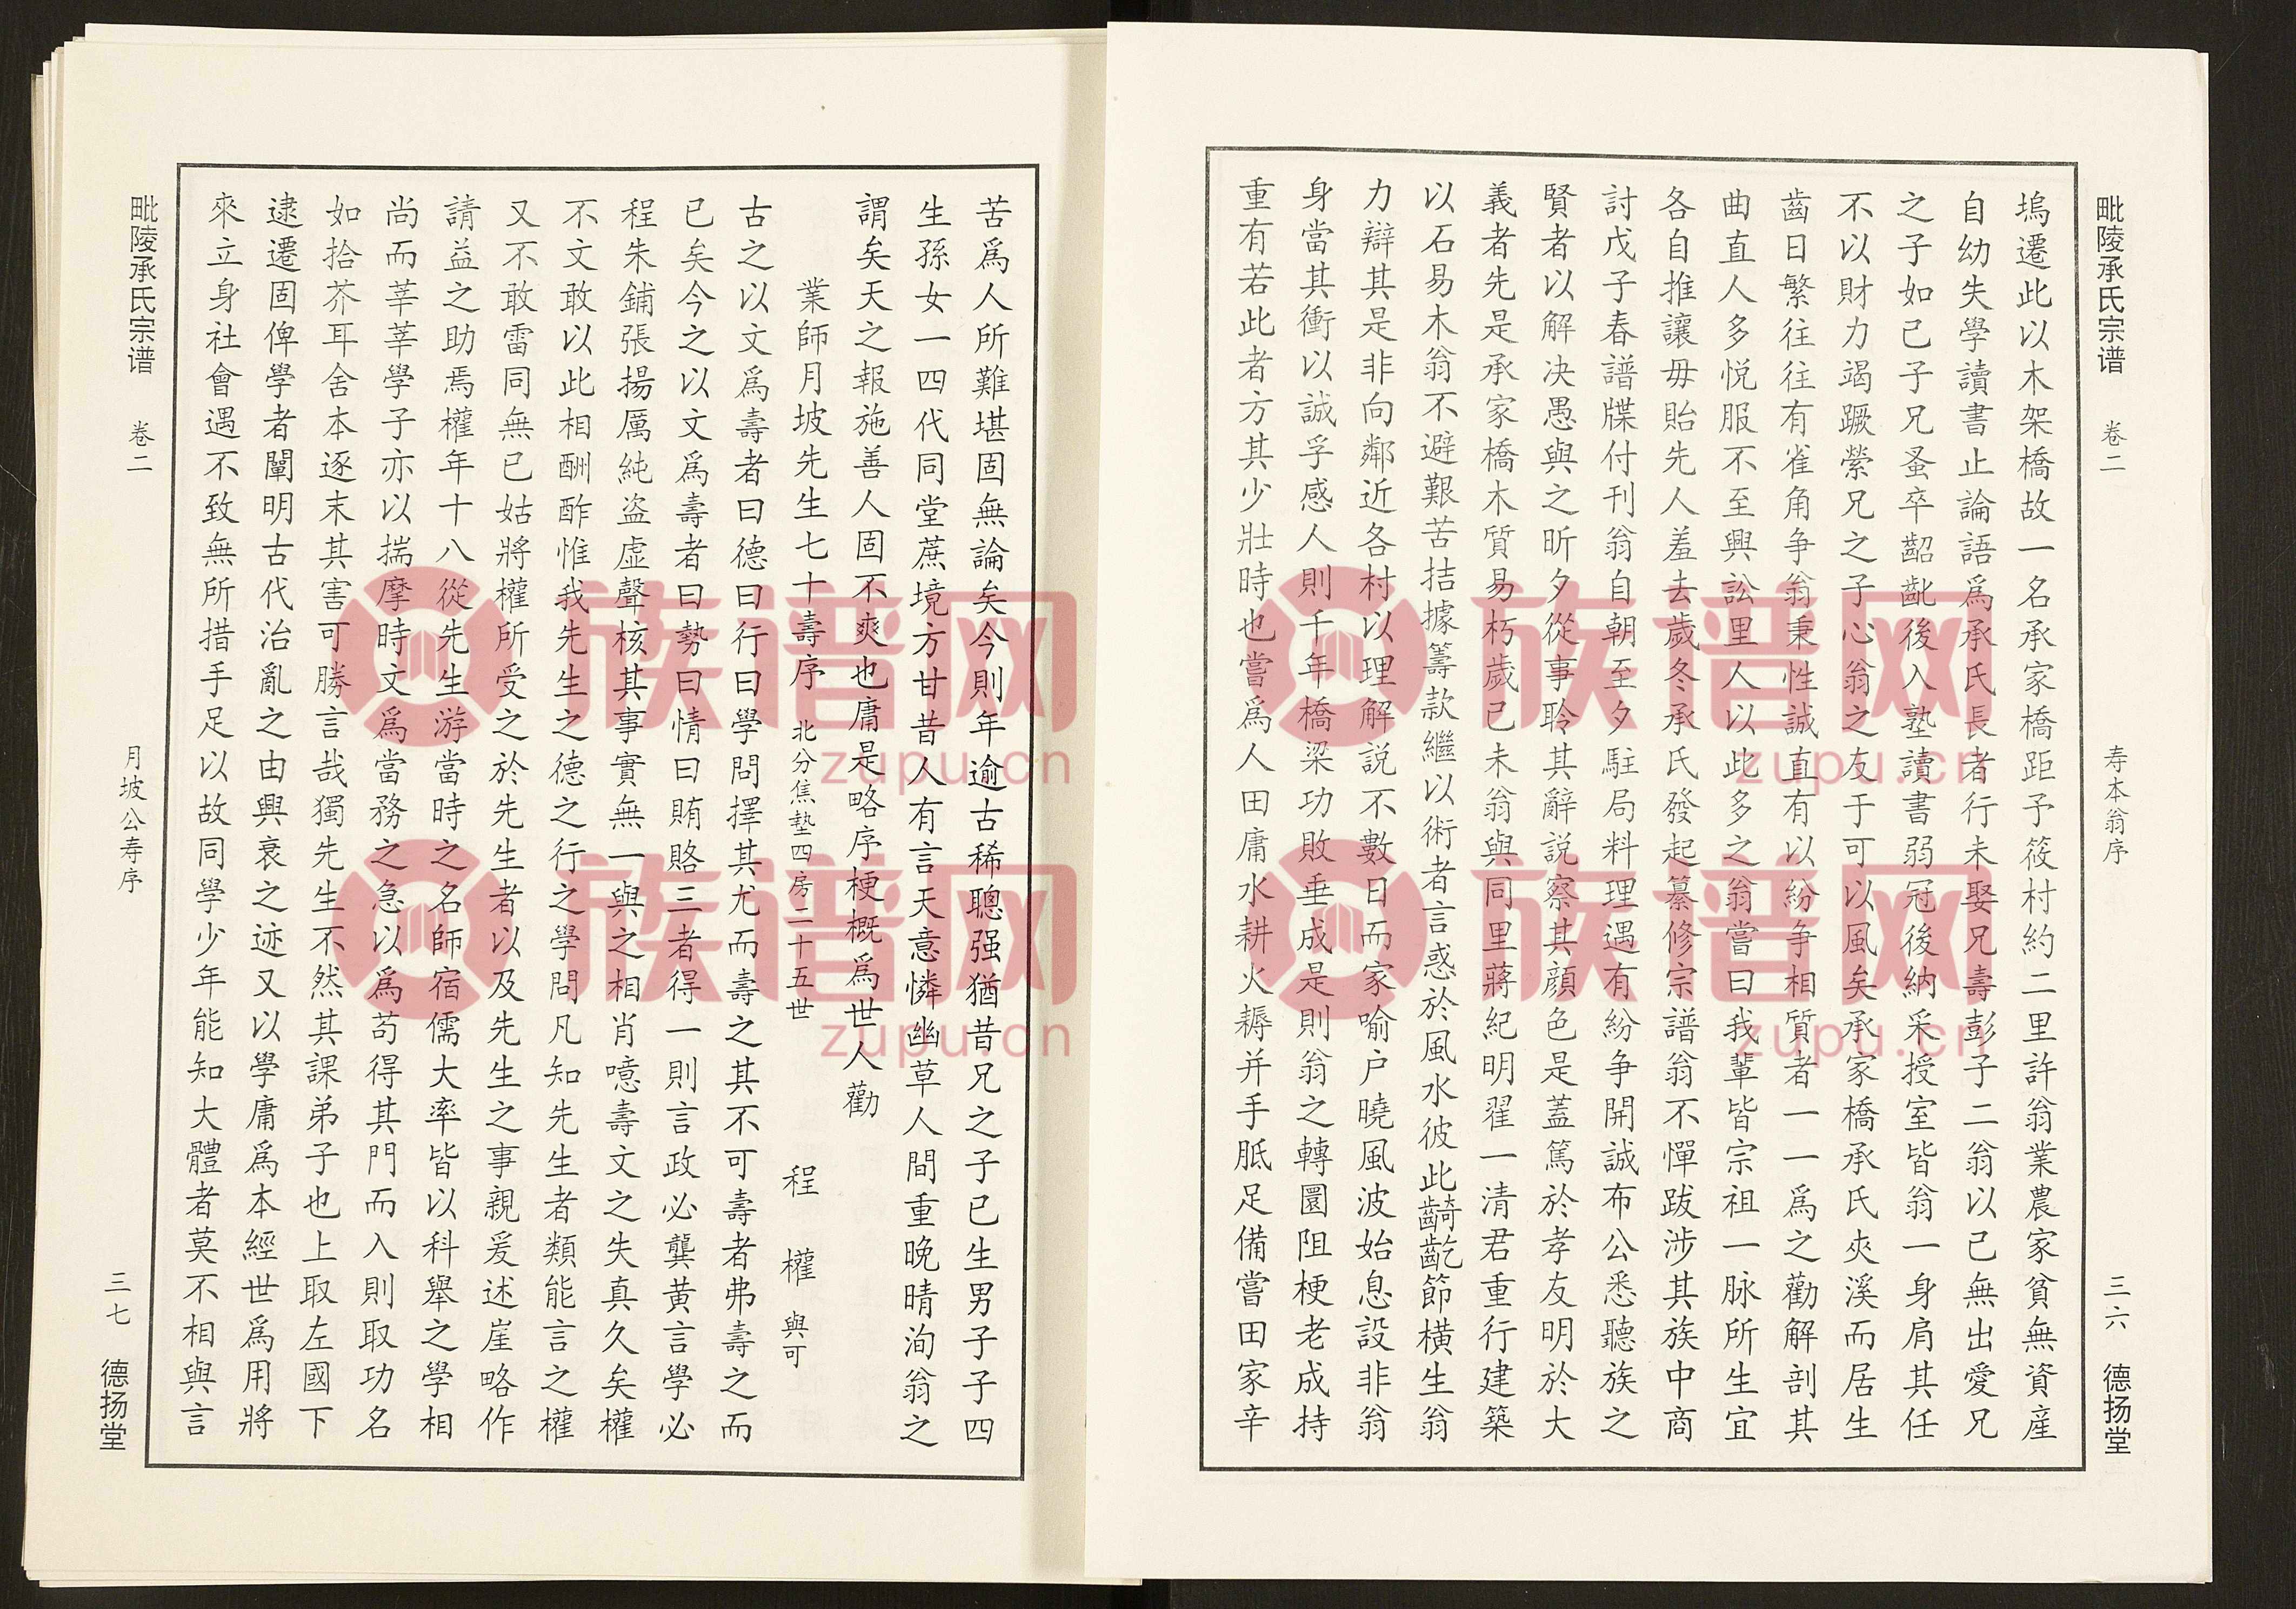 毗陵承氏宗谱　卷二　寿本翁序　三六　德扬堂
塢遷此以木架橋故一名承家橋距予筱村約二里許翁業農家貧無資産
自幼失學讀書止論語爲承氏長者行未娶兄壽彭子二翁以己無出愛兄
之子如己子兄蚤卒齠齔後入塾讀書弱冠後納采授室皆翁一身肩其任
不以財力竭蹶縈兄之子心翁之友于可以風矣承家橋承氏夾溪而居生
齒日繁往往有雀角争翁秉性誠直有以紛争相質者一一爲之勸解剖其
曲直人多悦服不至興訟里人以此多之翁嘗曰我輩皆宗祖一脉所生宜
各自推讓毋貽先人羞去歲冬承氏發起纂修宗譜翁不憚跋涉其族中商
討戊子春譜牒付刊翁自朝至夕駐局料理遇有紛争開誠布公悉聽族之
賢者以解决愚與之昕夕從事聆其辭説察其顔色是蓋篤於孝友明於大
義者先是承家橋木質易朽歲己未翁與同里蔣紀明翟一清君重行建築
以石易木翁不避艱苦拮據籌款繼以術者言惑於風水彼此齮齕節横生翁
力辯其是非向鄰近各村以理解説不數日而家喻户曉風波始息設非翁
身當其衝以誠孚感人則千年橋梁功敗垂成是則翁之轉圜阻梗老成持
重有若此者方其少壯時也嘗爲人田庸水耕火耨并手胝足備嘗田家辛
苦爲人所難堪固無論矣今則年逾古稀聰强猶昔兄之子已生男子子四
生孫女一四代同堂蔗境方甘昔人有言天意憐幽草人間重晚晴洵翁之
謂矣天之報施善人固不爽也庸是略序梗概爲世人勸
業師月坡先生七十壽序　北分焦墊四房二十五世　程權　與可
古之以文爲壽者曰德曰行曰學問擇其尤而壽之其不可壽者弗壽之而
已矣今之以文爲壽者曰勢曰情曰賄賂三者得一則言政必龔黄言學必
程朱鋪張揚厲純盜虚聲核其事實無一與之相肖噫壽文之失真久矣權
不文敢以此相酬酢惟我先生之德之行之學問凡知先生者類能言之權
又不敢雷同無已姑將權所受之於先生者以及先生之事親爰述崖略作
請益之助焉權年十八從先生游當時之名師宿儒大率皆以科舉之學相
尚而莘莘學子亦以揣摩時文爲當務之急以爲苟得其門而入則取功名
如拾芥耳舍本逐末其害可勝言哉獨先生不然其課弟子也上取左國下
逮遷固俾學者闡明古代治亂之由興衰之迹又以學庸爲本經世爲用將
來立身社會遇不致無所措手足以故同學少年能知大體者莫不相與言
毗陵承氏宗谱　卷二　月坡公寿序　三七　德扬堂
族谱网
zupu.cn
族谱网
zupu.cn
族谱网
zupu.cn
族谱网
zupu.cn